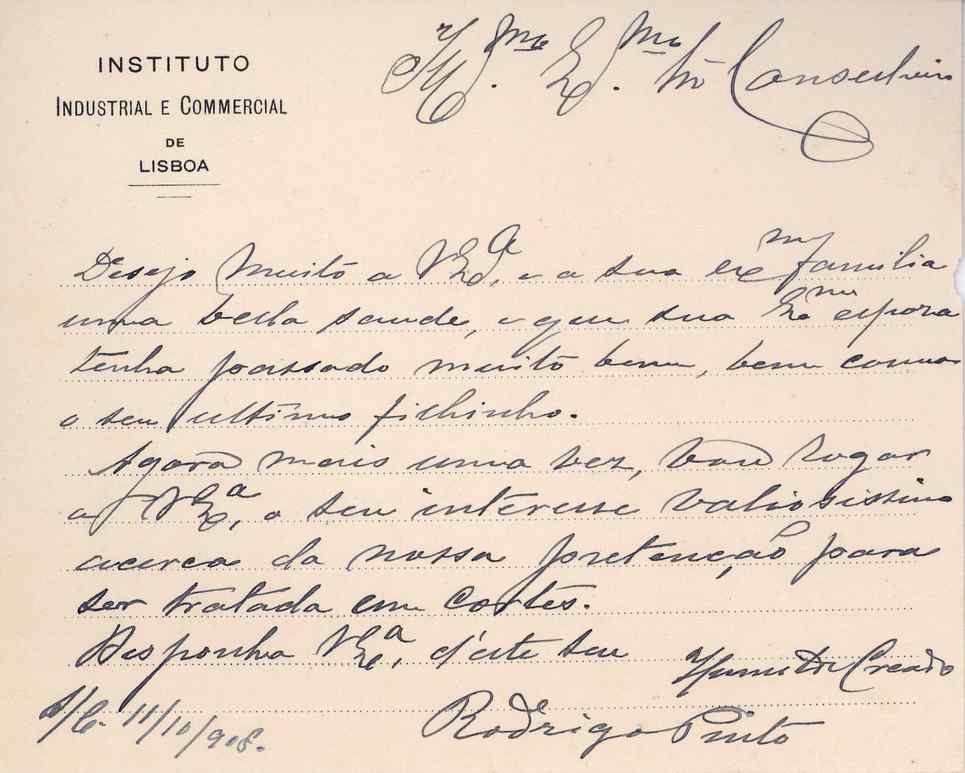 INSTITUTO
INDUSTRIAL E COMMERCIAL
DE
LISBOA
Ill.mo Ex.mo Snr Conselheiro
Desejo muito a V Ex.a, e a sua ex.ma familia
uma bella saude, e que sua Ex.ma espoza
tenha passado muito bem, bem como
o seu ultimo filhinho.
Agora mais uma vez, vou rogar
a V Ex.a, o seu interesse valiosissimo
acerca da nossa pretenção para
ser tratada em cortes.
Desponha V Ex.a, d'este seu
Humilde Creado
S/C. 11/10/908.
Rodrigo Pinto